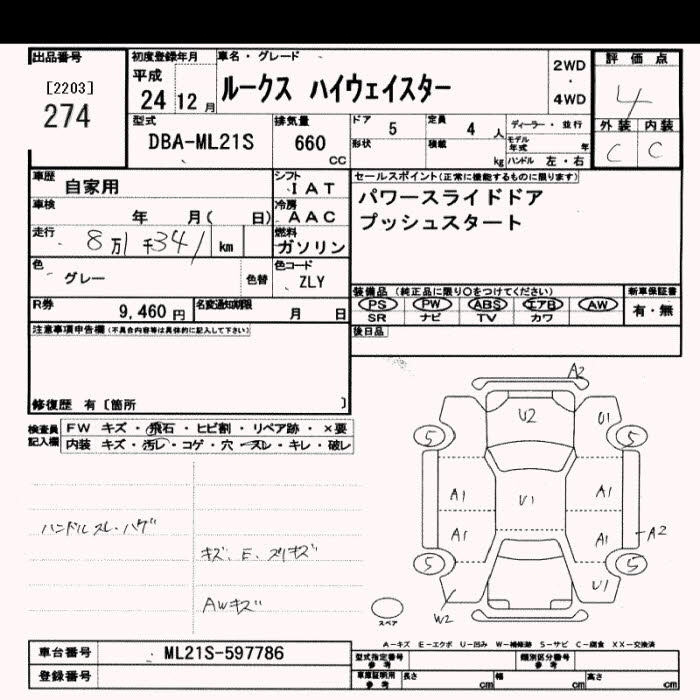 出品番号
[2203]
274
初度登録年月
平成
24 12 月
車名・グレード
ルークス ハイウェイスター
2WD
・
4WD
評価点
4
外装 内装
C C
型式
DBA-ML21S
排気量
660
CC
ドア
5
定員
4 人
ディーラー・並行
形状
積載
kg
モデル
年式
年
ハンドル 左・右
車歴
自家用
シフト
IAT
セールスポイント(正常に機能するものに限ります)
パワースライドドア
プッシュスタート
車検
年 月( 日)
冷房
AAC
走行
8万1千341 km
燃料
ガソリン
色
グレー
色替
色コード
ZLY
装備品(純正品に限り〇をつけてください)
PS PW ABS エアB AW
SR ナビ TV カワ
新車保証書
有・無
R券
9,460 円
名変通知期限
月 日
後日品
注意事項申告欄(不具合内容等は具体的に記入して下さい)
修復歴 有〔箇所 〕
検査員
記入欄
FW キズ・飛石・ヒビ割・リペア跡・×要
内装 キズ・汚レ・コゲ・穴・スレ・キレ・破レ
ハンドルスレ・ハゲ
キズ、E、スリキズ
AWキズ
A2
U2
U1
5
5
A1
U1
A1
A1
A1
A2
5
5
U1
W2
スペア
A-キズ E-エクボ U-凹み W-補修跡 S-サビ C-腐食 XX-交換済
車台番号
ML21S-597786
登録番号
型式指定番号
参考
類別区分番号
参考
車庫証明用
参考
長さ cm
幅 cm
高さ cm